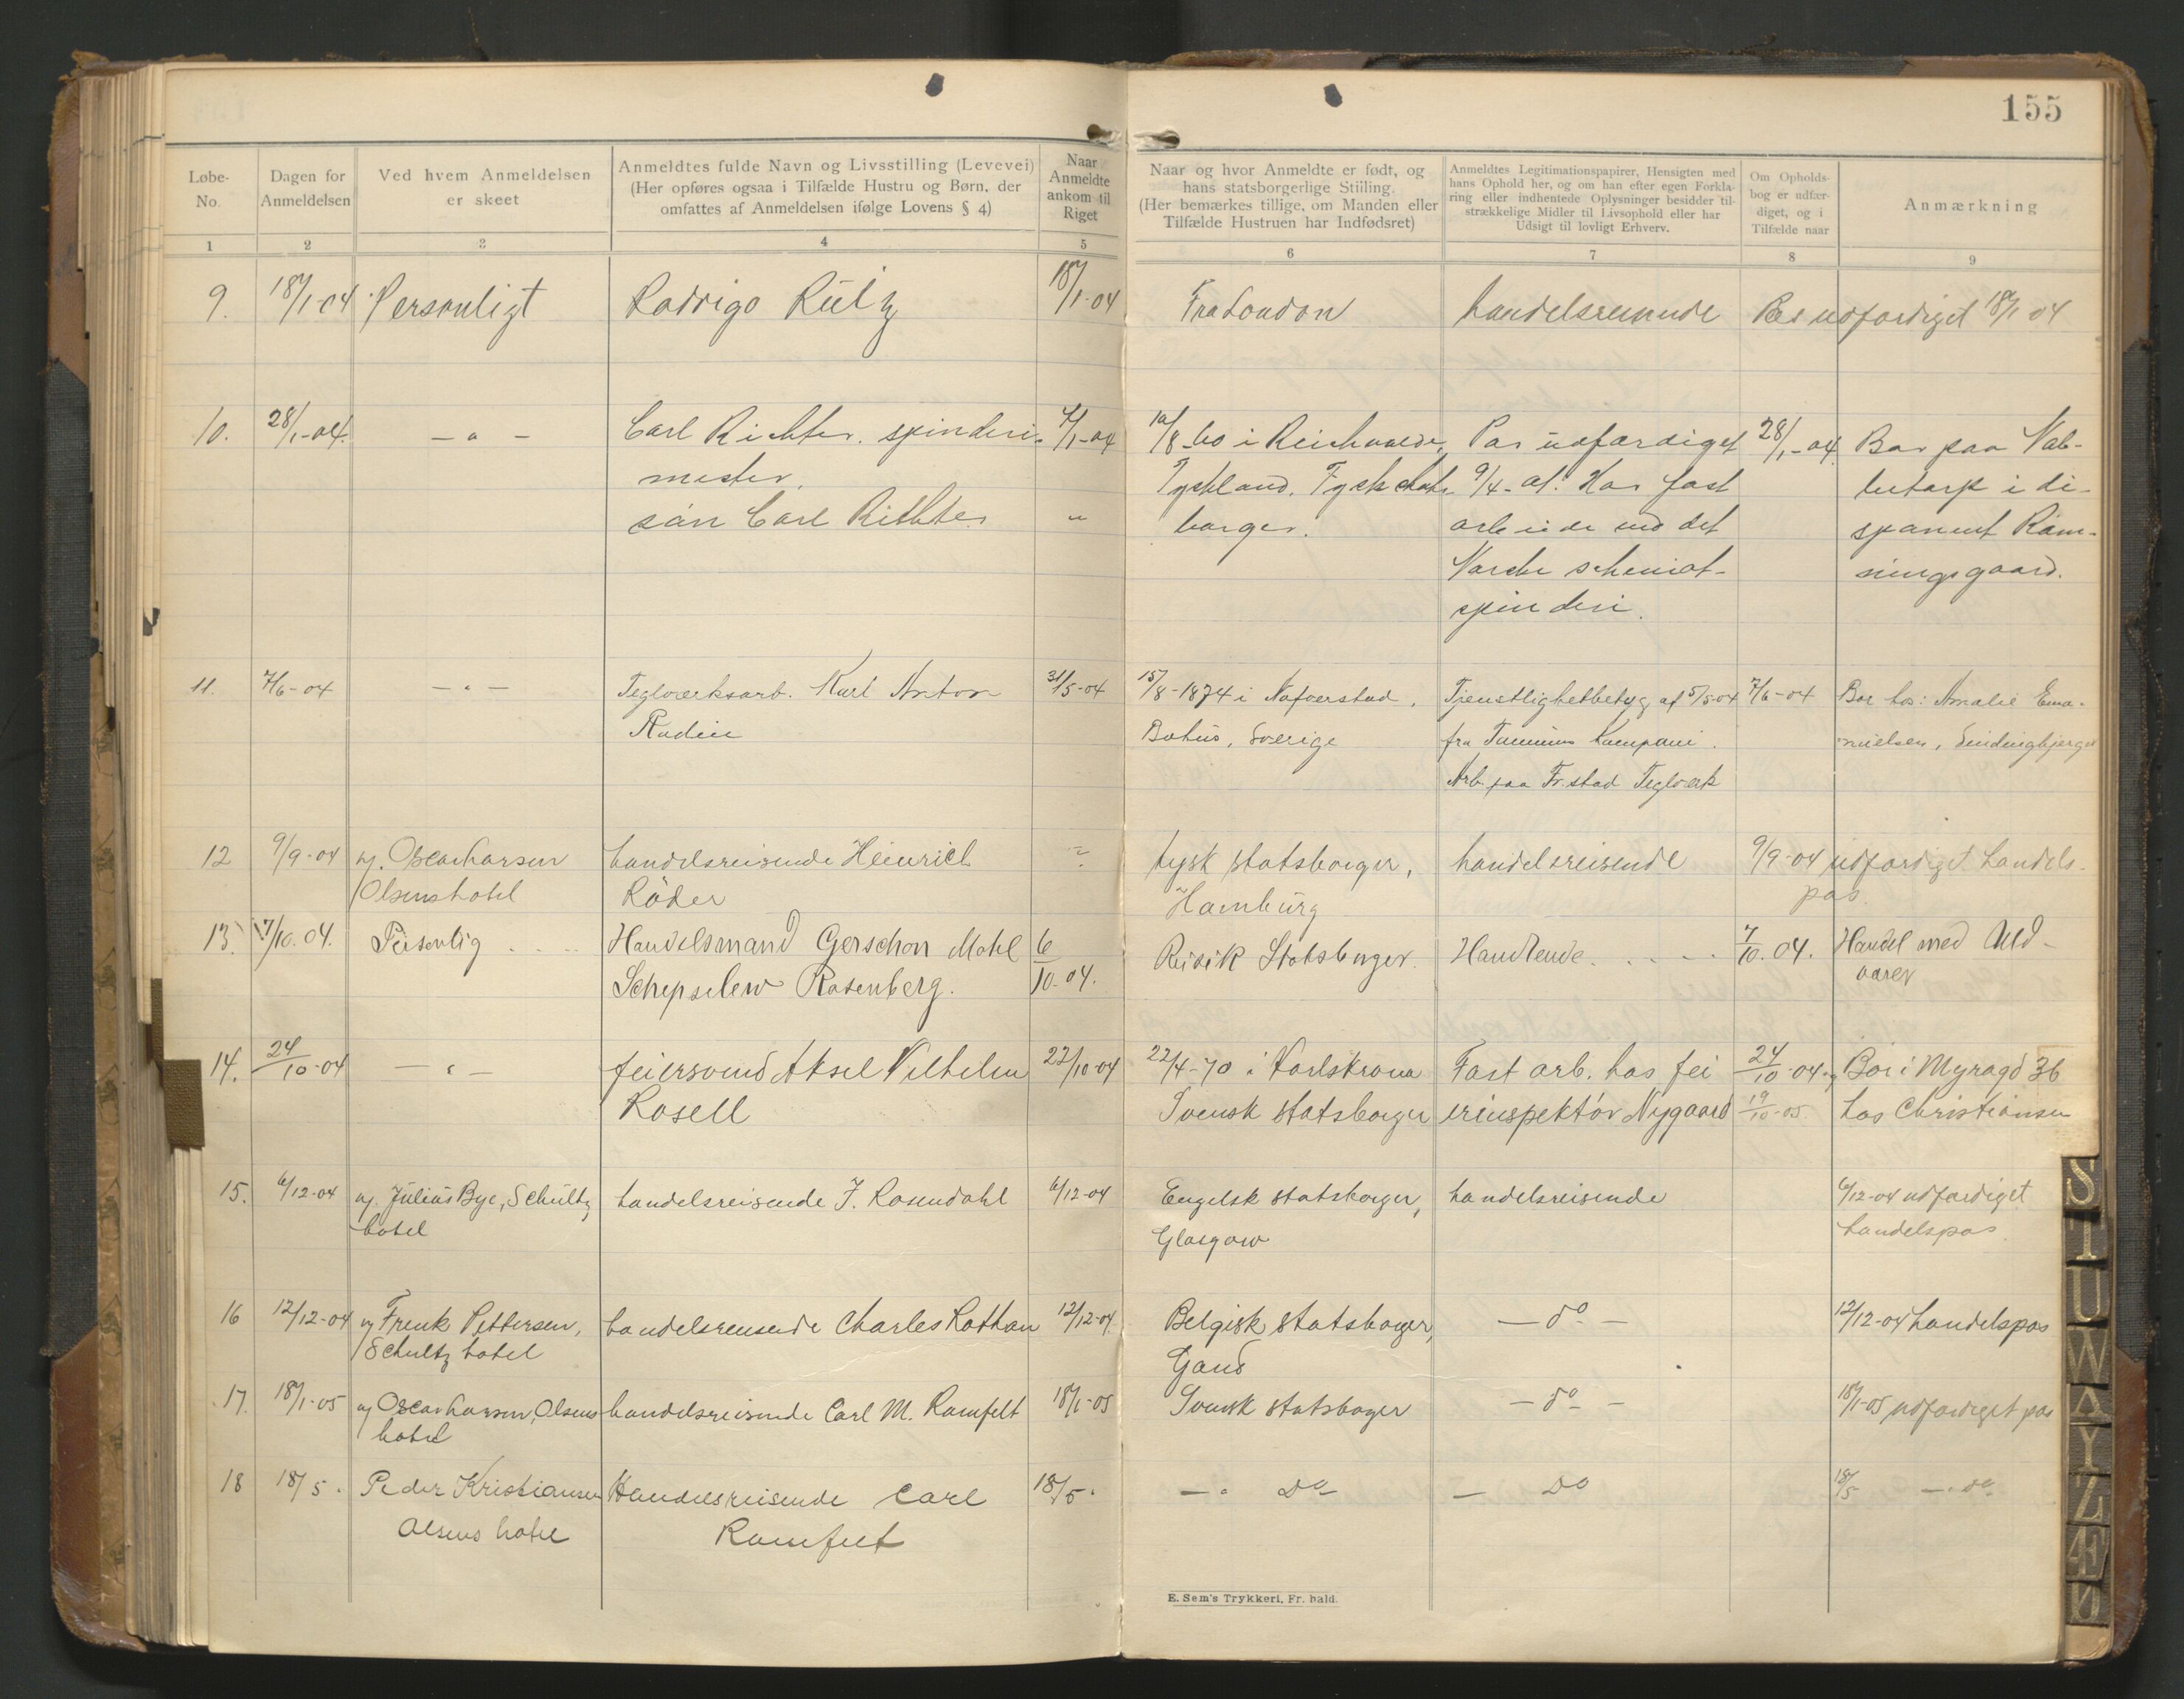 155
Løbe-
No.
Dagen for
Anmeldelsen
Ved hvem Anmeldelsen
er skeet
Anmeldtes fulde Navn og Livsstilling (Levevei)
(Her opføres ogsaa i Tilfælde Hustru og Børn, der
omfattes af Anmeldelsen ifølge Lovens § 4)
Naar
Anmeldte
ankom til
Riget
Naar og hvor Anmeldte er født, og
hans statsborgerlige Stilling.
(Her bemærkes tillige, om Manden eller
Tilfælde Hustruen har Indfødsret)
Anmeldtes Legitimationspapirer, Hensigten med
hans Ophold her, og om han efter egen Forkla-
ring eller indhentede Oplysninger besidder til-
strækkelige Midler til Livsophold eller har
Udsigt til lovligt Erhverv.
Om Opholds-
bog er udfær-
diget, og i
Tilfælde naar
Anmærkning
1 2 3 4 5 6 7 8 9
9. 18/1-04 Personligt Rodrigo 18/1-04 Fra London handelsreisende Pas udfærdiget 18/1 04
10. 28/1-04. — " — Carl Richter. spinderi- 4/1-04 10/8-60 i Pas udfærdiget 28/1-04. Bor paa Vab-
mester. Tyskland. Tysk stats- 9/4-01. Har fast
søn Carl Richter " borger. arbeide ved det
Norske
spinderi. singsgaard.
11. 7/6-04 — " — Teglverksarb. Karl Anton 31/5-04 15/8-1874 i Nafverstad, Tjenstlighetbetyg af 5/5-04 7/6-04 Bor hos: Amalie Ema-
Rudin Bohus, Sverige fra Kompani. nuelsen,
Arb. paa Fr.stad Teglverk
12 9/9-04 v. Oscar Larsen handelsreisende Heinrich tysk statsborger, handelsreisende 9/9-04 udfærdiget handels-
Olsens hotel Röder Hamburg pas.
13. 7/10.04. Personlig Handelsmand Gerschon Motel 6/10-04. Rusisk Statsborger. Handlende 7/10.04. Handel med Uld-
Schepselew Rosenberg. varer
14. 24/10-04 — " — feiersvend Aksel Vilhelm 22/10-04 22/4-70 i Karlskrona Fast arb. hos fei 24/10-04 og Bor i Myragd 36
Rosell Svensk statsborger erinspektør Nygaard 19/10-05. hos Christiansen
15. 6/12-04 v. Julius Bye, Schultz handelsreisende J. Rosendahl 6/12-04 Engelsk statsborger, handelsreisende 6/12-04 udfærdiget
hotel Glasgow handelspas
16 12/12-04 v. Frenk Pettersen, handelsreisende Charles Rothan 12/12-04. Belgisk statsborger, — do — 12/12-04 handelspas
Schultz hotel Gand
17. 18/1-05 v. Oscar Larsen, Olsens handelsreisende Carl M. Ramfelt 18/1-05 Svensk statsborger — do — 18/1-05 udfærdiget pas
hotel
18 18/5. Peder Kristiansen Handelsreisende Carl 18/5. — " do — do 18/5 — " do
Olsens hotel Ramfelt
E. Sem's Trykkeri, Fr. hald.
S
T
U
W
Y
Z
Æ
Ø